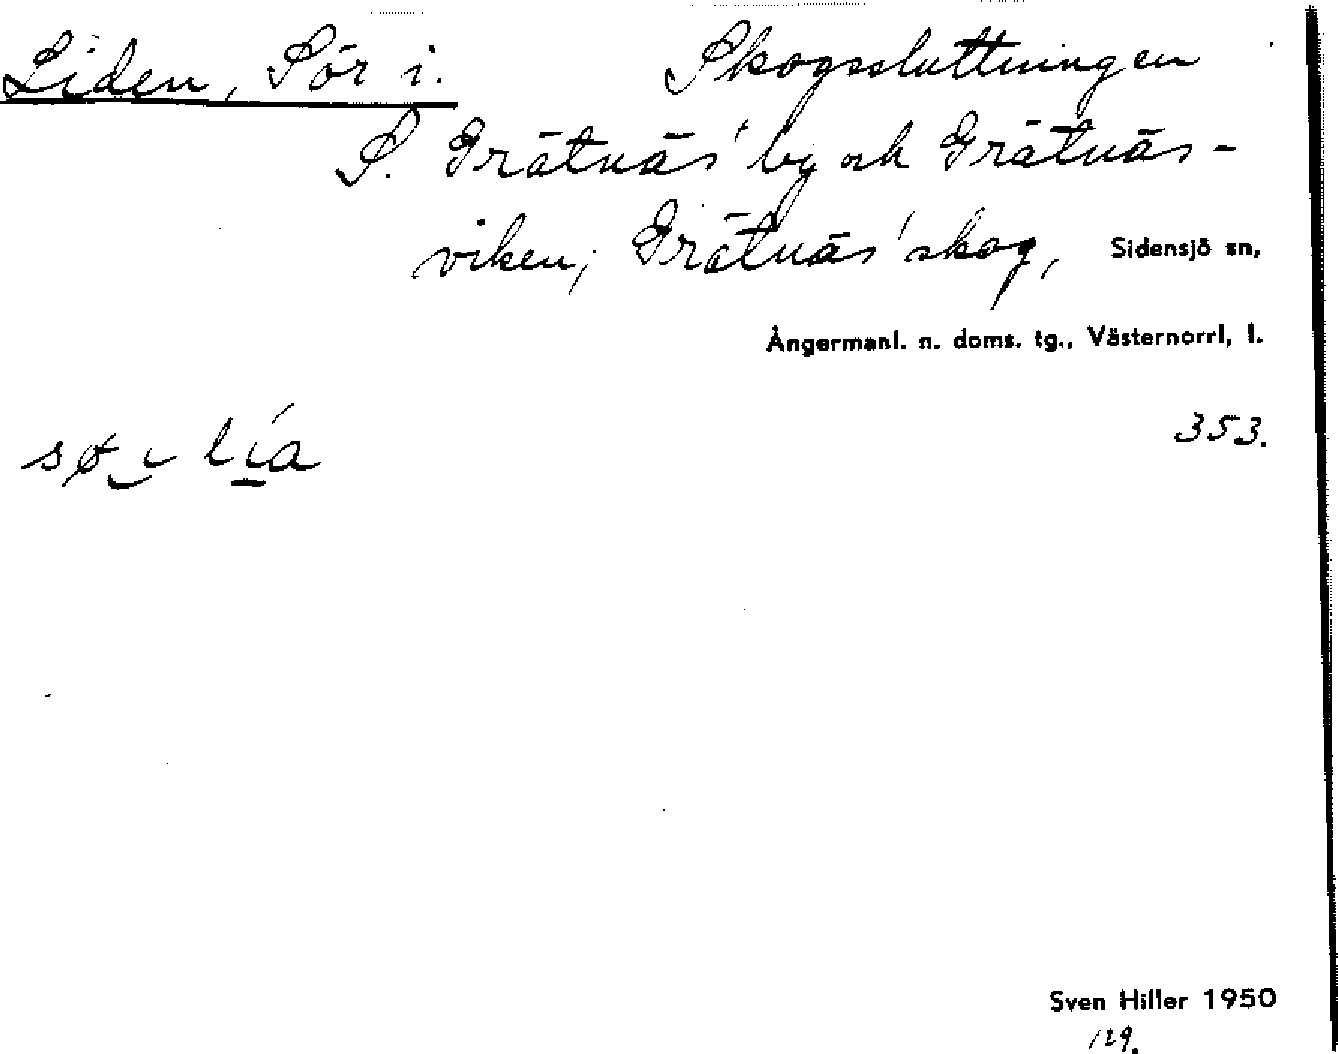 Liden, Sör i. Skogssluttningen
S. Grätnäs' by och Grätnäs-
viken; Grätnäs' skog, Sidensjö sn,
Ångermanl. n. doms. tg., Västernorrl. l.
353.
sø i lía
Sven Hiller 1950
129.